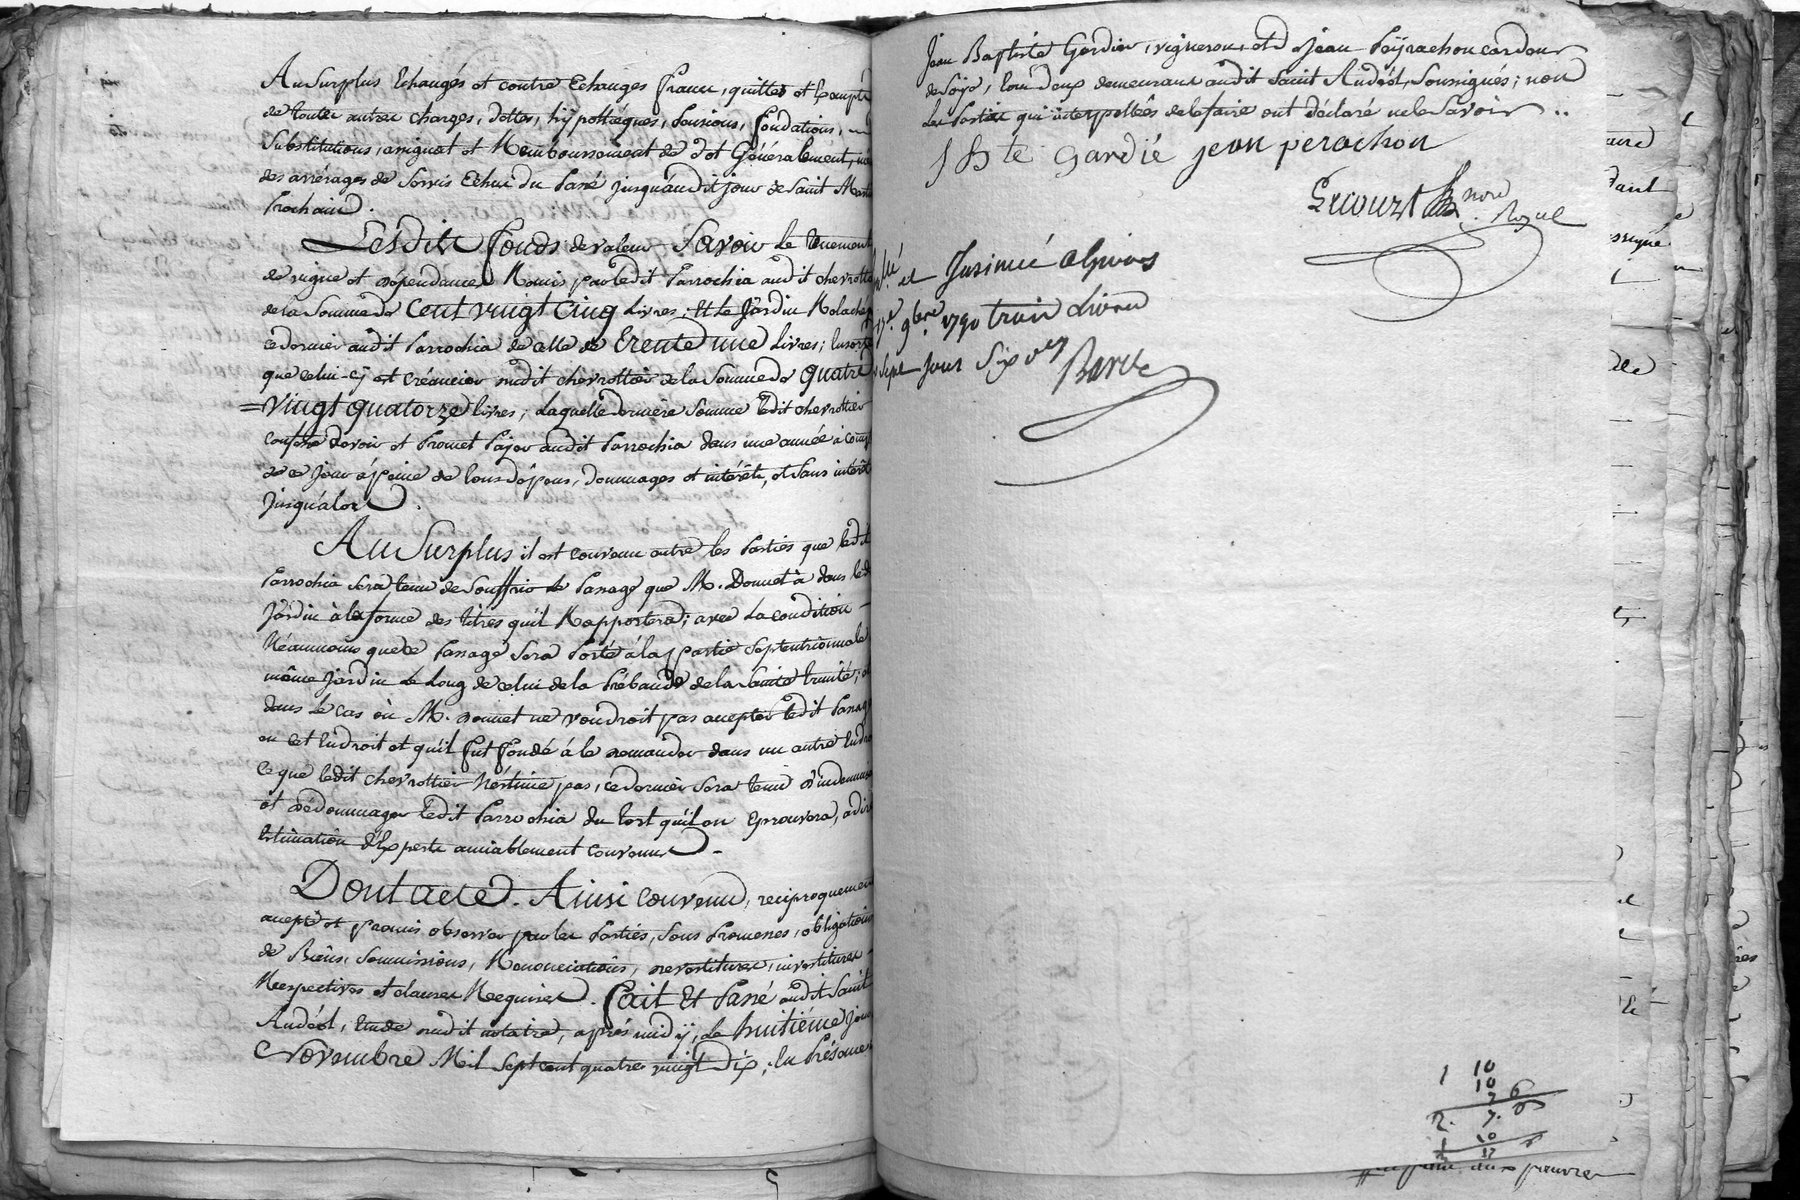 Au Surplus Echangés et contre Echanges francs, quittes et Exempts
de toutes autres charges, dettes, hÿpothéques, Pensions, fondations,
Substitutions, assignat et Remboursement de dot Généralement,
des arrérages de Servis Echus du Passé jusqu'audit jour de Saint Martin
Prochain.
Lesdits fonds de valeur Savoir le tenement
de vigne et dépendances Remis par ledit Parrochia audit chevrottier
de la Somme de Cent vingt Cinq Livres; Et le Jardin Relaché par
ce dernier audit Parrochia de celle de Trente une Livres; Ensorte
que celui-cÿ est créancier dudit chevrottier de la Somme de Quatre
= vingt quatorze livres; Laquelle derniére Somme ledit chevrottier
confesse devoir et Promet Païer audit Parrochia dans une année à compter
de ce jour à peine de tous dépens, dommages et intérêts, et Sans intérêt
Jusqu'alors.
Au Surplus il est convenu entre les Parties que ledit
Parrochia Sera tenu de Souffrir le Passage que M. Donnet à dans ledit
Jardin à la forme des titres qu'il Rapportera; avec la condition
Néanmoins que ce Passage Sera Porté à la partie Septentrionnale
même Jardin Le Long de celui de la Prébande de la Sainte trinité; et
dans le cas où M. Donnet ne voudroit pas accepter ledit Passage
en cet Endroit et qu'il fut fondé à le demander dans un autre Endroit
ce que ledit chevrottier N'éstime pas, ce dernier Sera tenu d'indemniser
et dédommager ledit Parrochia du tort qu'il en Eprouvera, à dire
Estimation d'Experts amiablement convenus.
Dont acte. Ainsi convenu, reciproquement
accepté et promis observer par les Parties, Sous Promesses, obligations
de Biens, Soumissions, Renonciations, devestitures, investitures
Respectives et clauses Requises. Fait Et Passé audit Saint
Andéol, Etude dudit notaire, après midÿ, Le huitiéme jour
Novembre Mil Sept cent quatre vingt Dix; En Présence
Jean Baptiste Gardier, vigneron, et d Jean Peÿrachon cardeur
de Soÿe, tous deux demeurans audit Saint Andéol, Soussignés; non
Les Parties qui interpellées de le faire ont déclaré ne le Savoir
J Bte Gardié jean perachon
Gecourt Nore Royal
et Insinué à Givors
9bre 1790 trois Livres
Sept Sous Six
1 10
10 6
7
2. 7. 6